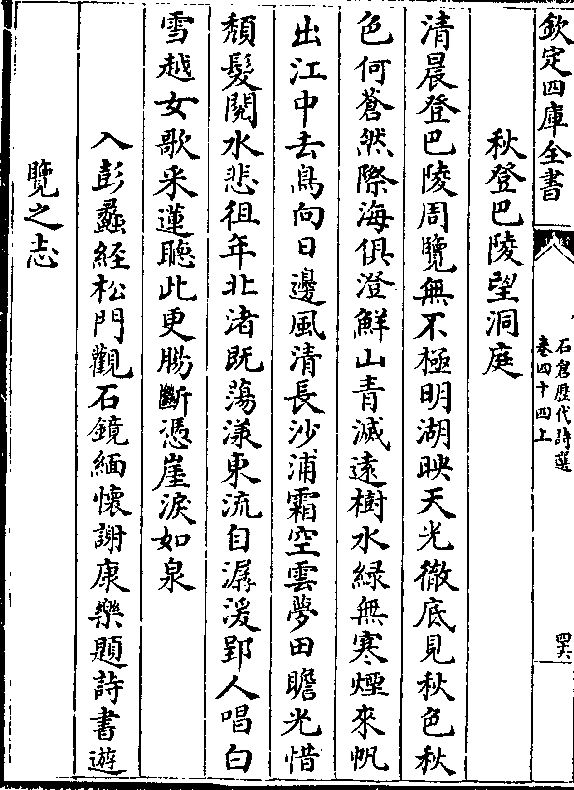 欽定四庫全書
石倉歷代詩選
卷四十四上
四六
秋登巴陵望洞庭
清晨登巴陵周覽無不極明湖映天光徹底見秋色秋
色何蒼然際海俱澄鮮山青滅遠樹水緑無寒煙來帆
出江中去鳥向日邊風清長沙浦霜空雲夢田瞻光惜
頽髮閱水悲徂年北渚既蕩漾東流自潺湲郢人唱白
雪越女歌采蓮聽此更腸斷憑崖淚如泉
入彭蠡經松門觀石鏡緬懷謝康樂題詩書遊
覽之志